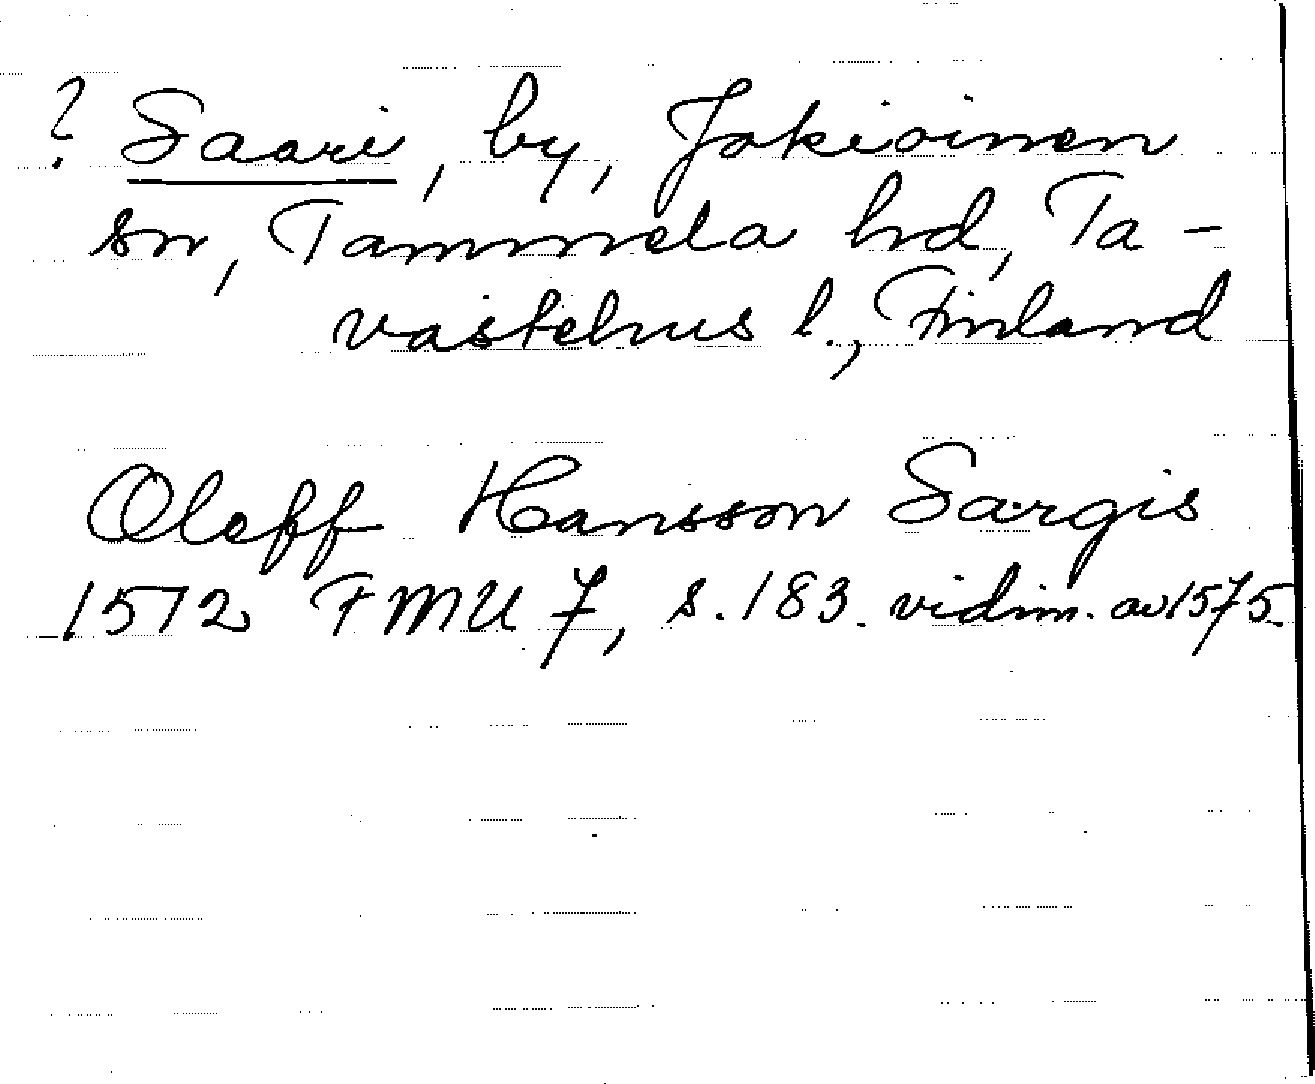 ? Saari, by, Jokioinen
sn, Tammela hd, Ta-
vastehus l., Finland
Oleff Hansson Sargis
1512 FMU 7, s. 183. vidim. av 1575.